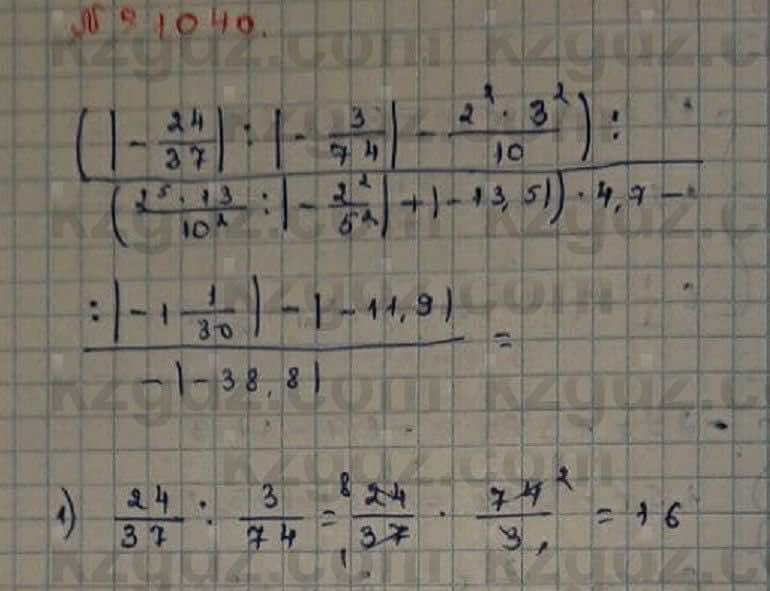 № 1040.
(|-24/37| : |-3/74| - 2² · 3²/10) :
(2⁵ · 13/10² : |-2²/5²| + |-13,5|) · 4,7 -
: |-1 1/30| - |-11,9|
- |-38,8| =
1) 24/37 : 3/74 = ⁸24/37₁ · 74²/3₁ = 16
kzgdz.com